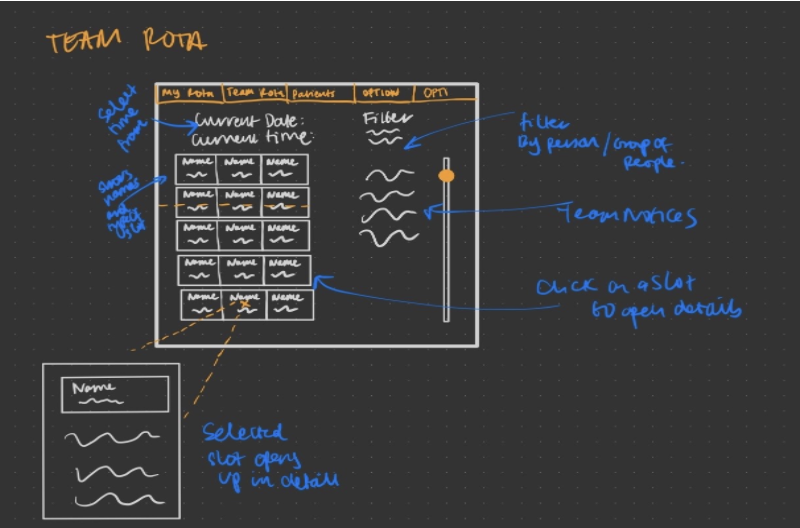 TEAM ROTA
My Rota
Team Rota
Patients
OPTION
OPTI
Select
time
from
Current Date:
Current time:
Filter
filter
By person / Group of
people.
Name Name Name
Name Name Name
Name Name Name
Name Name Name
Name Name Name
shows
names
and
Team Notices
Click on a slot
to open details
Name
Selected
slot opens
up in detail